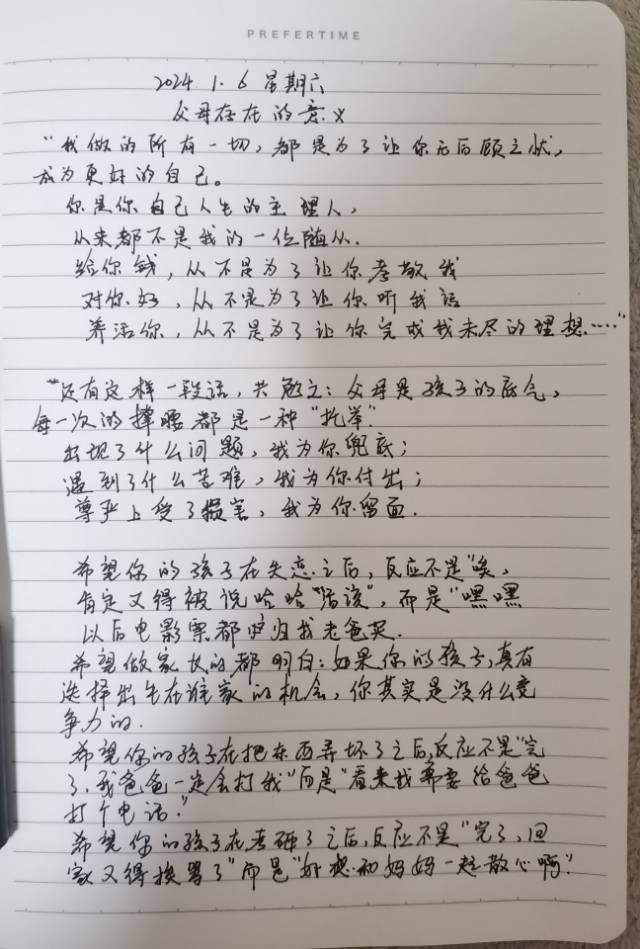 PREFERTIME
2024.1.6 星期六
父母存在的意义
"我做的所有一切，都是为了让你无后顾之忧，
成为更好的自己。
你是你自己人生的主理人，
从来都不是我的一位随从.
给你钱，从不是为了让你孝敬我
对你好，从不是为了让你听我话
养活你，从不是为了让你完成我未尽的理想……"
"还有这样一段话，共勉之：父母是孩子的底气，
每一次的撑腰都是一种"托举"
出现了什么问题，我为你兜底；
遇到了什么苦难，我为你付出；
尊严上受了损害，我为你留面.
希望你的孩子在失恋之后，反应不是"唉，
肯定又得被说哈哈"活该"，而是"嘿嘿
以后电影票都归我老爸买.
希望做家长的都明白：如果你的孩子，真有
选择出生在谁家的机会，你其实是没什么竞
争力的.
希望你的孩子在把东西弄坏了之后，反应不是"完
了，我爸爸一定会打我"而是"看来我需要给爸爸
打个电话."
希望你的孩子在考砸了之后，反应不是"完了，回
家又得挨骂了"而是"好想和妈妈一起散心啊"